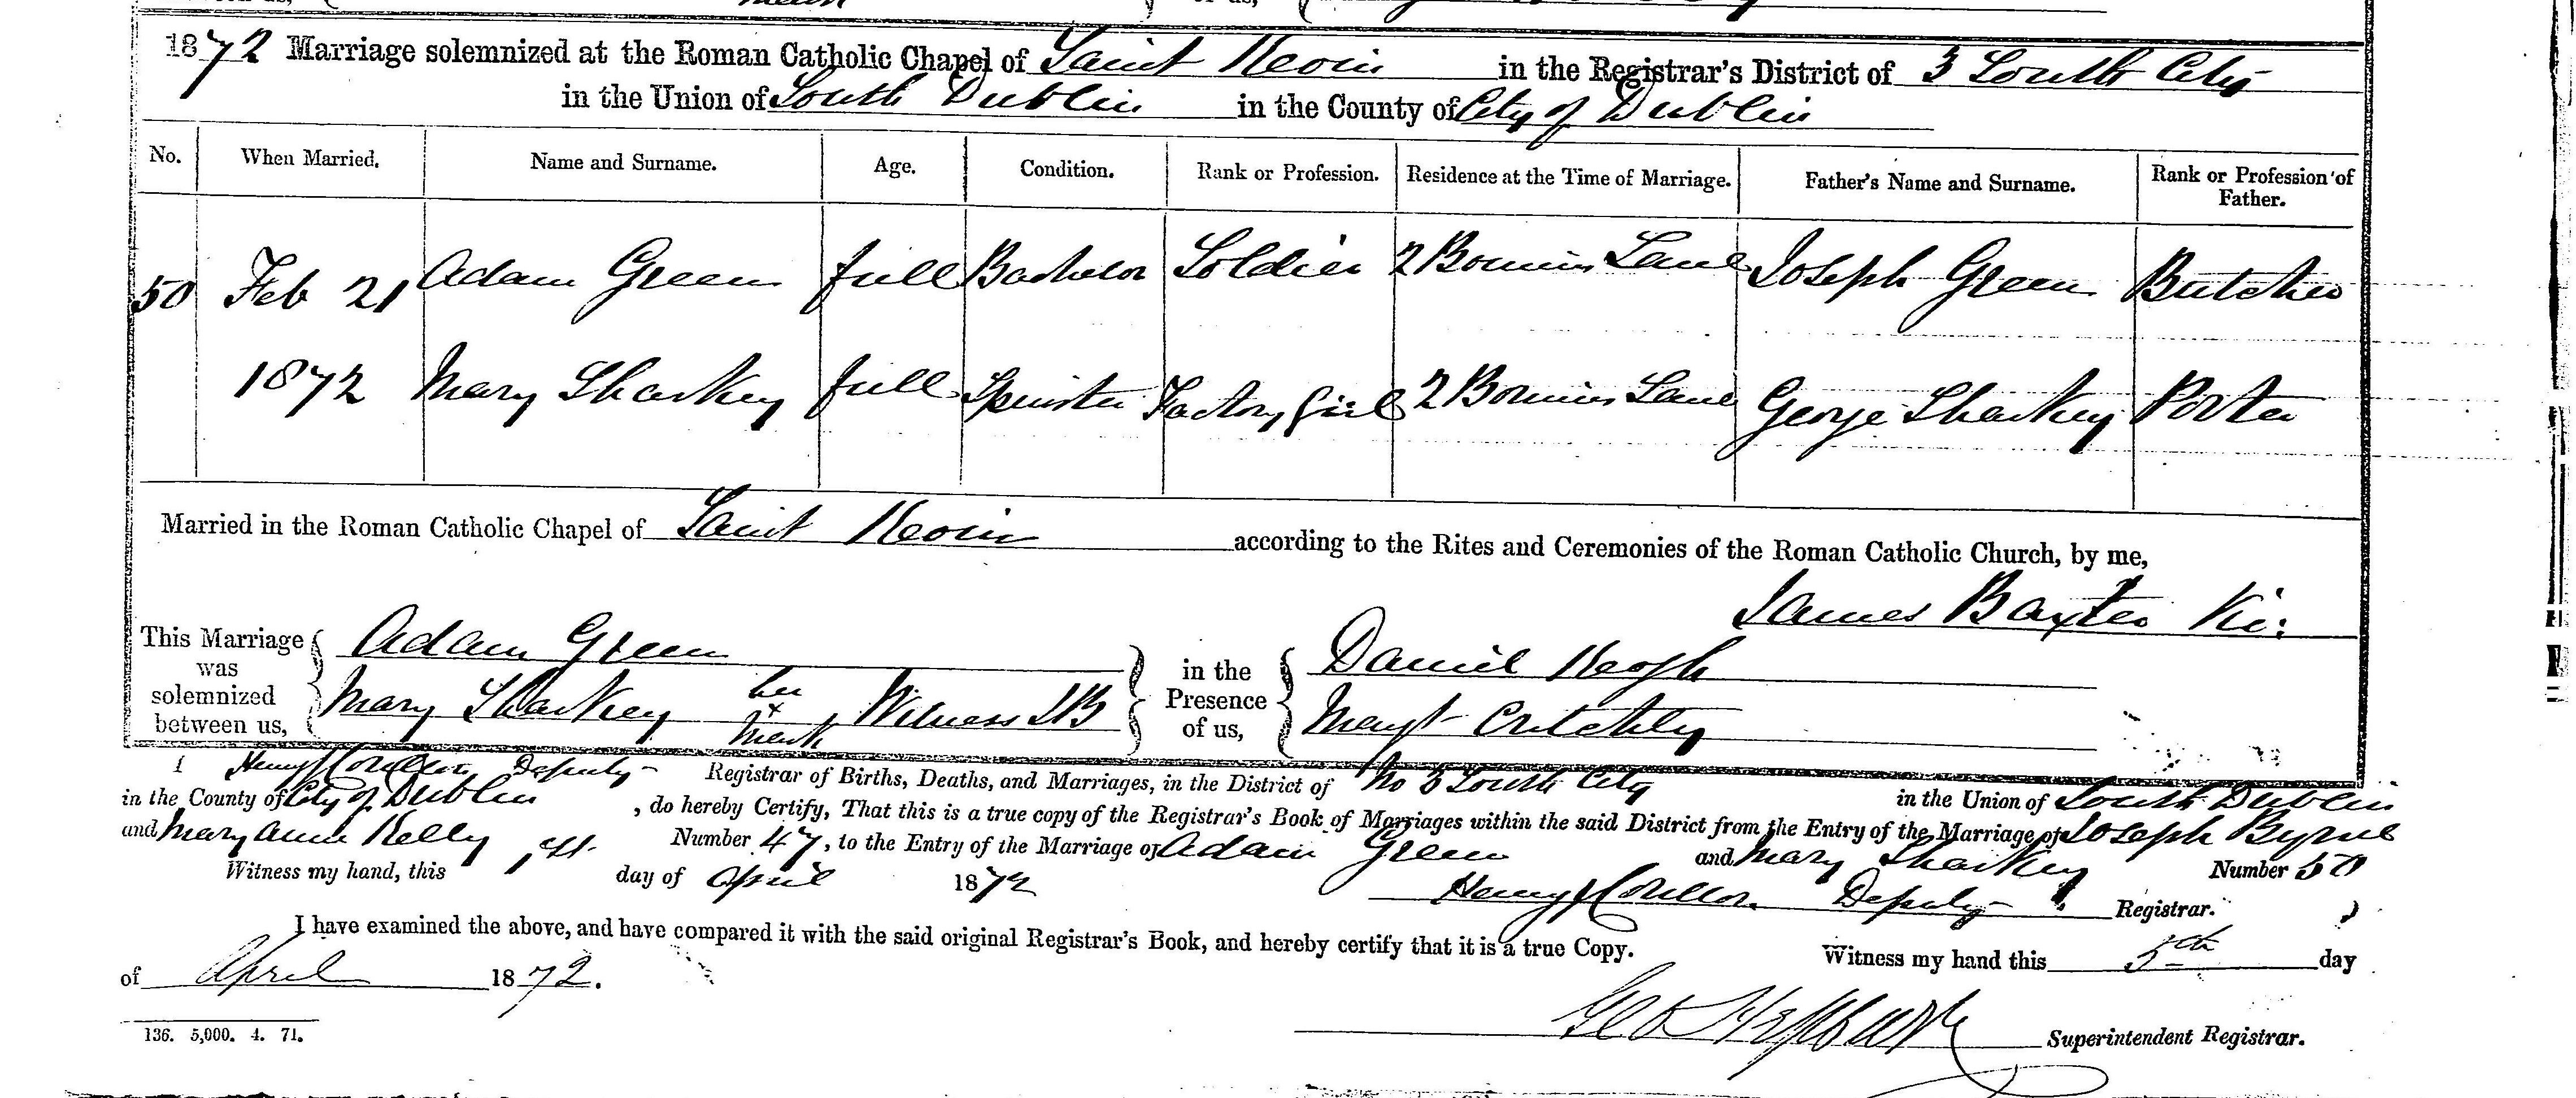 1872 Marriage solemnized at the Roman Catholic Chapel of Saint Kevin in the Registrar's District of 3 South City
in the Union of South Dublin in the County of City of Dublin
No. When Married. Name and Surname. Age. Condition. Rank or Profession. Residence at the Time of Marriage. Father's Name and Surname. Rank or Profession of Father.
50 Feb 21 Adam Green full Bachelor Soldier 2 Lane Joseph Green Butcher
1872 Mary Sharkey full Spinster Factory Girl 2 Lane George Sharkey Porter
Married in the Roman Catholic Chapel of Saint Kevin according to the Rites and Ceremonies of the Roman Catholic Church, by me,
James Baxter
This Marriage was solemnized between us, Adam Green
Mary Sharkey her x mark Witness JB
in the Presence of us, Daniel Keogh
Margt Critchley
I Henry Deputy Registrar of Births, Deaths, and Marriages, in the District of No 3 South City in the Union of South Dublin
in the County of City of Dublin, do hereby Certify, That this is a true copy of the Registrar's Book of Marriages within the said District from the Entry of the Marriage of Joseph Byrne
and Mary Anne Kelly Number 47, to the Entry of the Marriage of Adam Green and Mary Sharkey Number 50
Witness my hand, this 1st day of April 1872 Henry Deputy Registrar.
I have examined the above, and have compared it with the said original Registrar's Book, and hereby certify that it is a true Copy. Witness my hand this 5th day
of April 1872.
Superintendent Registrar.
136. 5,000. 4. 71.